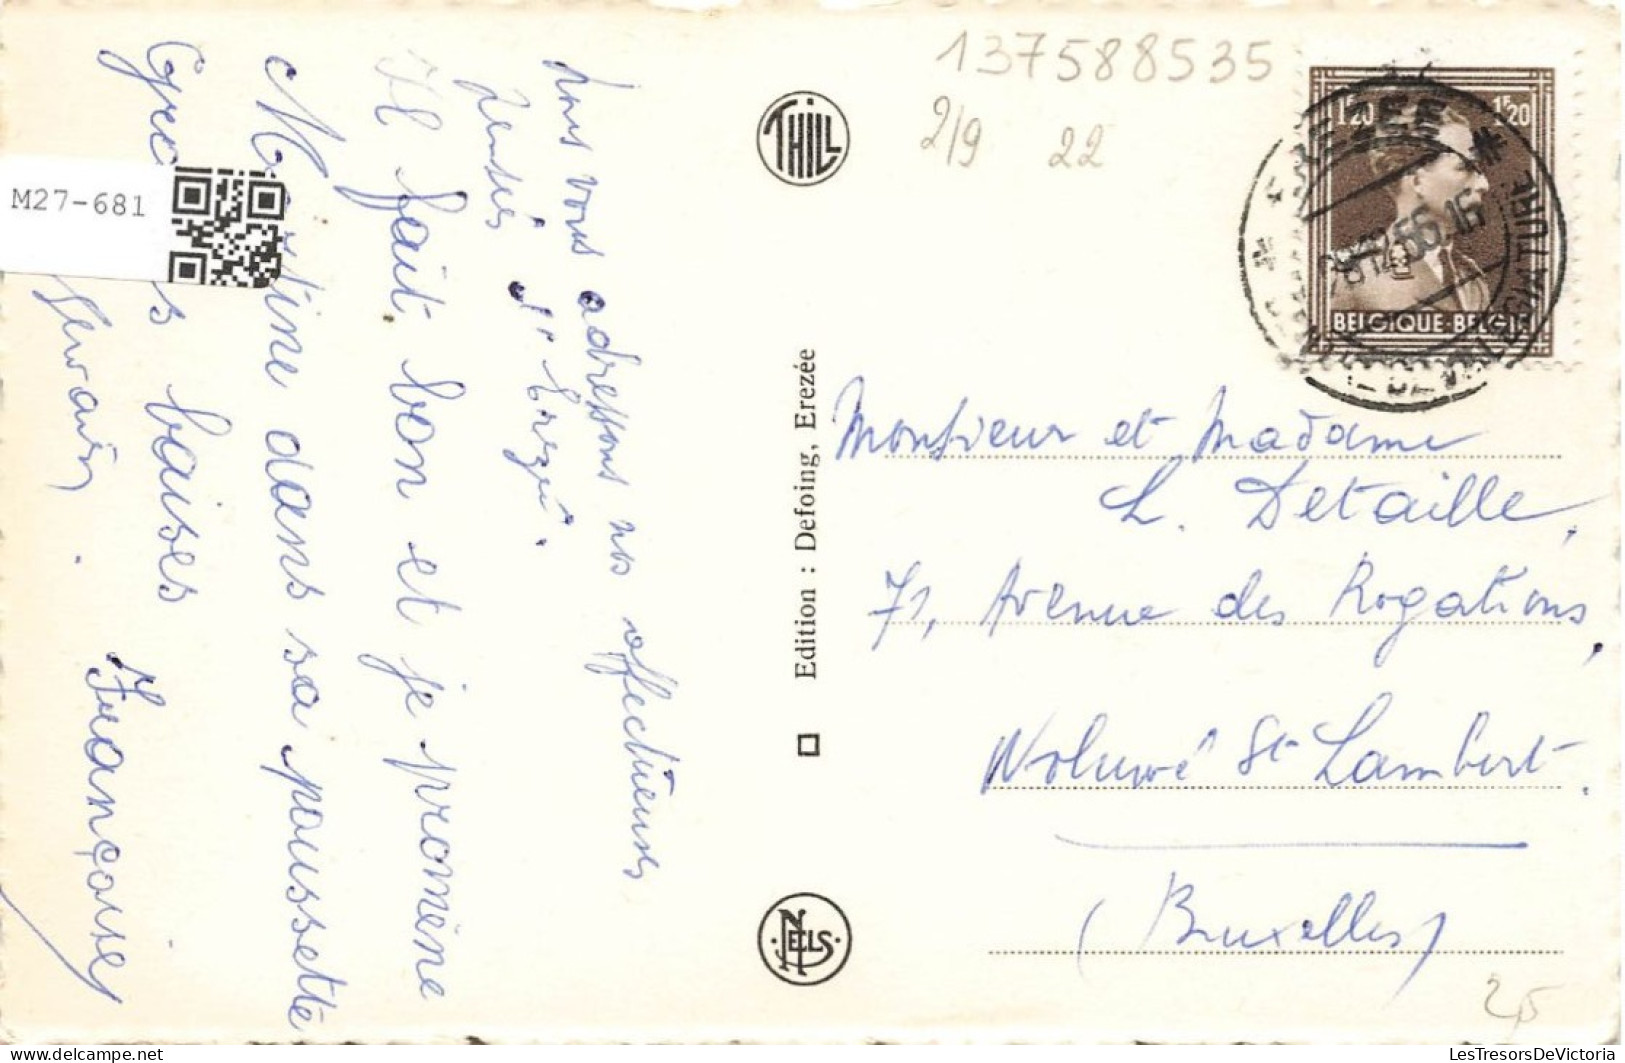 137588535
2/9 22
1F20 1F20
BELGIQUE-BELGIË
EREZEE
THILL
M27-681
Nous vous adressons nos affectueuses
pensées d'Erezée.
Il fait bon et je promène
Martine dans sa poussette
baises
Françoise
Edition : Defoing, Erezée
NELS
Monsieur et Madame
L. Detaille,
71, Avenue des Rogations,
Woluwé St Lambert.
(Bruxelles)
25
www.delcampe.net
LesTresorsDeVictoria